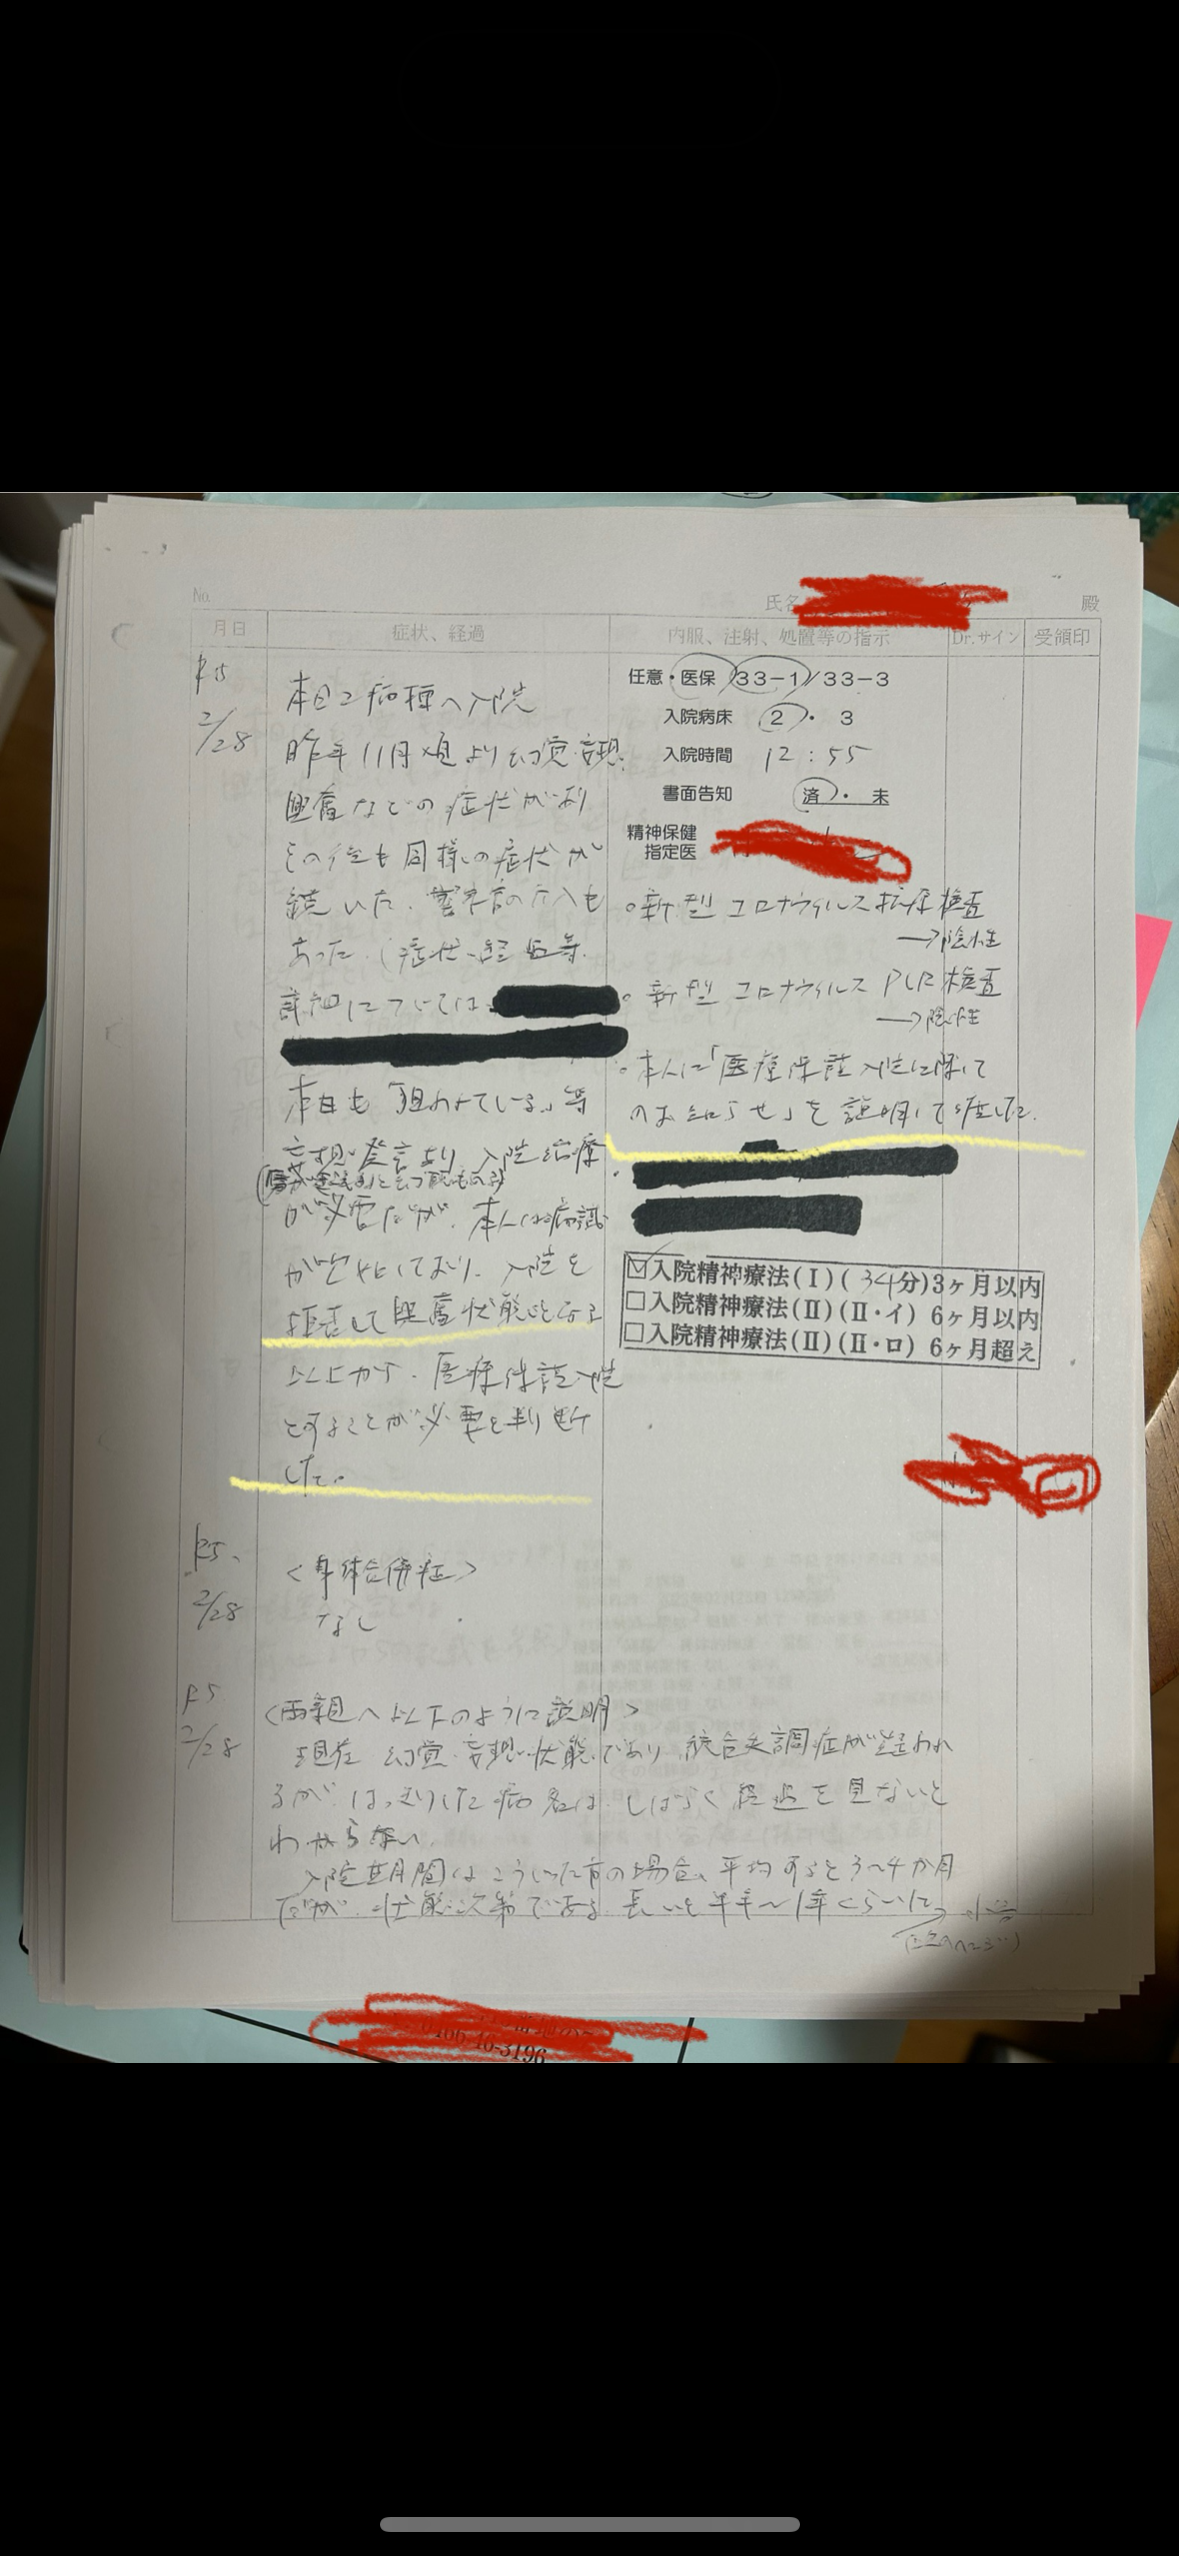 No.
氏名
殿
月日
症状、経過
内服、注射、処置等の指示
Dr.サイン
受領印
R5
2/28
本日2病棟へ入院
昨年11月頃より幻覚・妄想、
興奮などの症状があり
その後も同様の症状が
続いた。警察の介入も
あった。(症状、経過等、
詳細については
本日も「狙われている」等
妄想発言より、入院治療
が必要だが、本人は病識
が欠如しており、入院を
拒否して興奮状態となる
以上から、医療保護入院
とすることが必要と判断
した。
任意・医保(33-1/33-3
入院病床 2・3
入院時間 12:55
書面告知 済・未
精神保健
指定医
○新型コロナウィルス抗原検査
→陰性
○新型コロナウィルスPCR検査
→陰性
○本人に「医療保護入院に際して
のお知らせ」を説明して渡した。
☑入院精神療法(Ⅰ)(34分)3ヶ月以内
□入院精神療法(Ⅱ)(Ⅱ・イ)6ヶ月以内
□入院精神療法(Ⅱ)(Ⅱ・ロ)6ヶ月超え
R5.
2/28
<身体合併症>
なし
R5
2/28
<両親へ以下のように説明>
現在 幻覚・妄想状態であり、統合失調症が疑われ
るが、はっきりした病名は、しばらく経過を見ないと
わからない。
入院期間はこういった方の場合、平均すると3〜4か月
だが、状態次第である。長いと半年〜1年くらいに
(次のページ)
46-3196